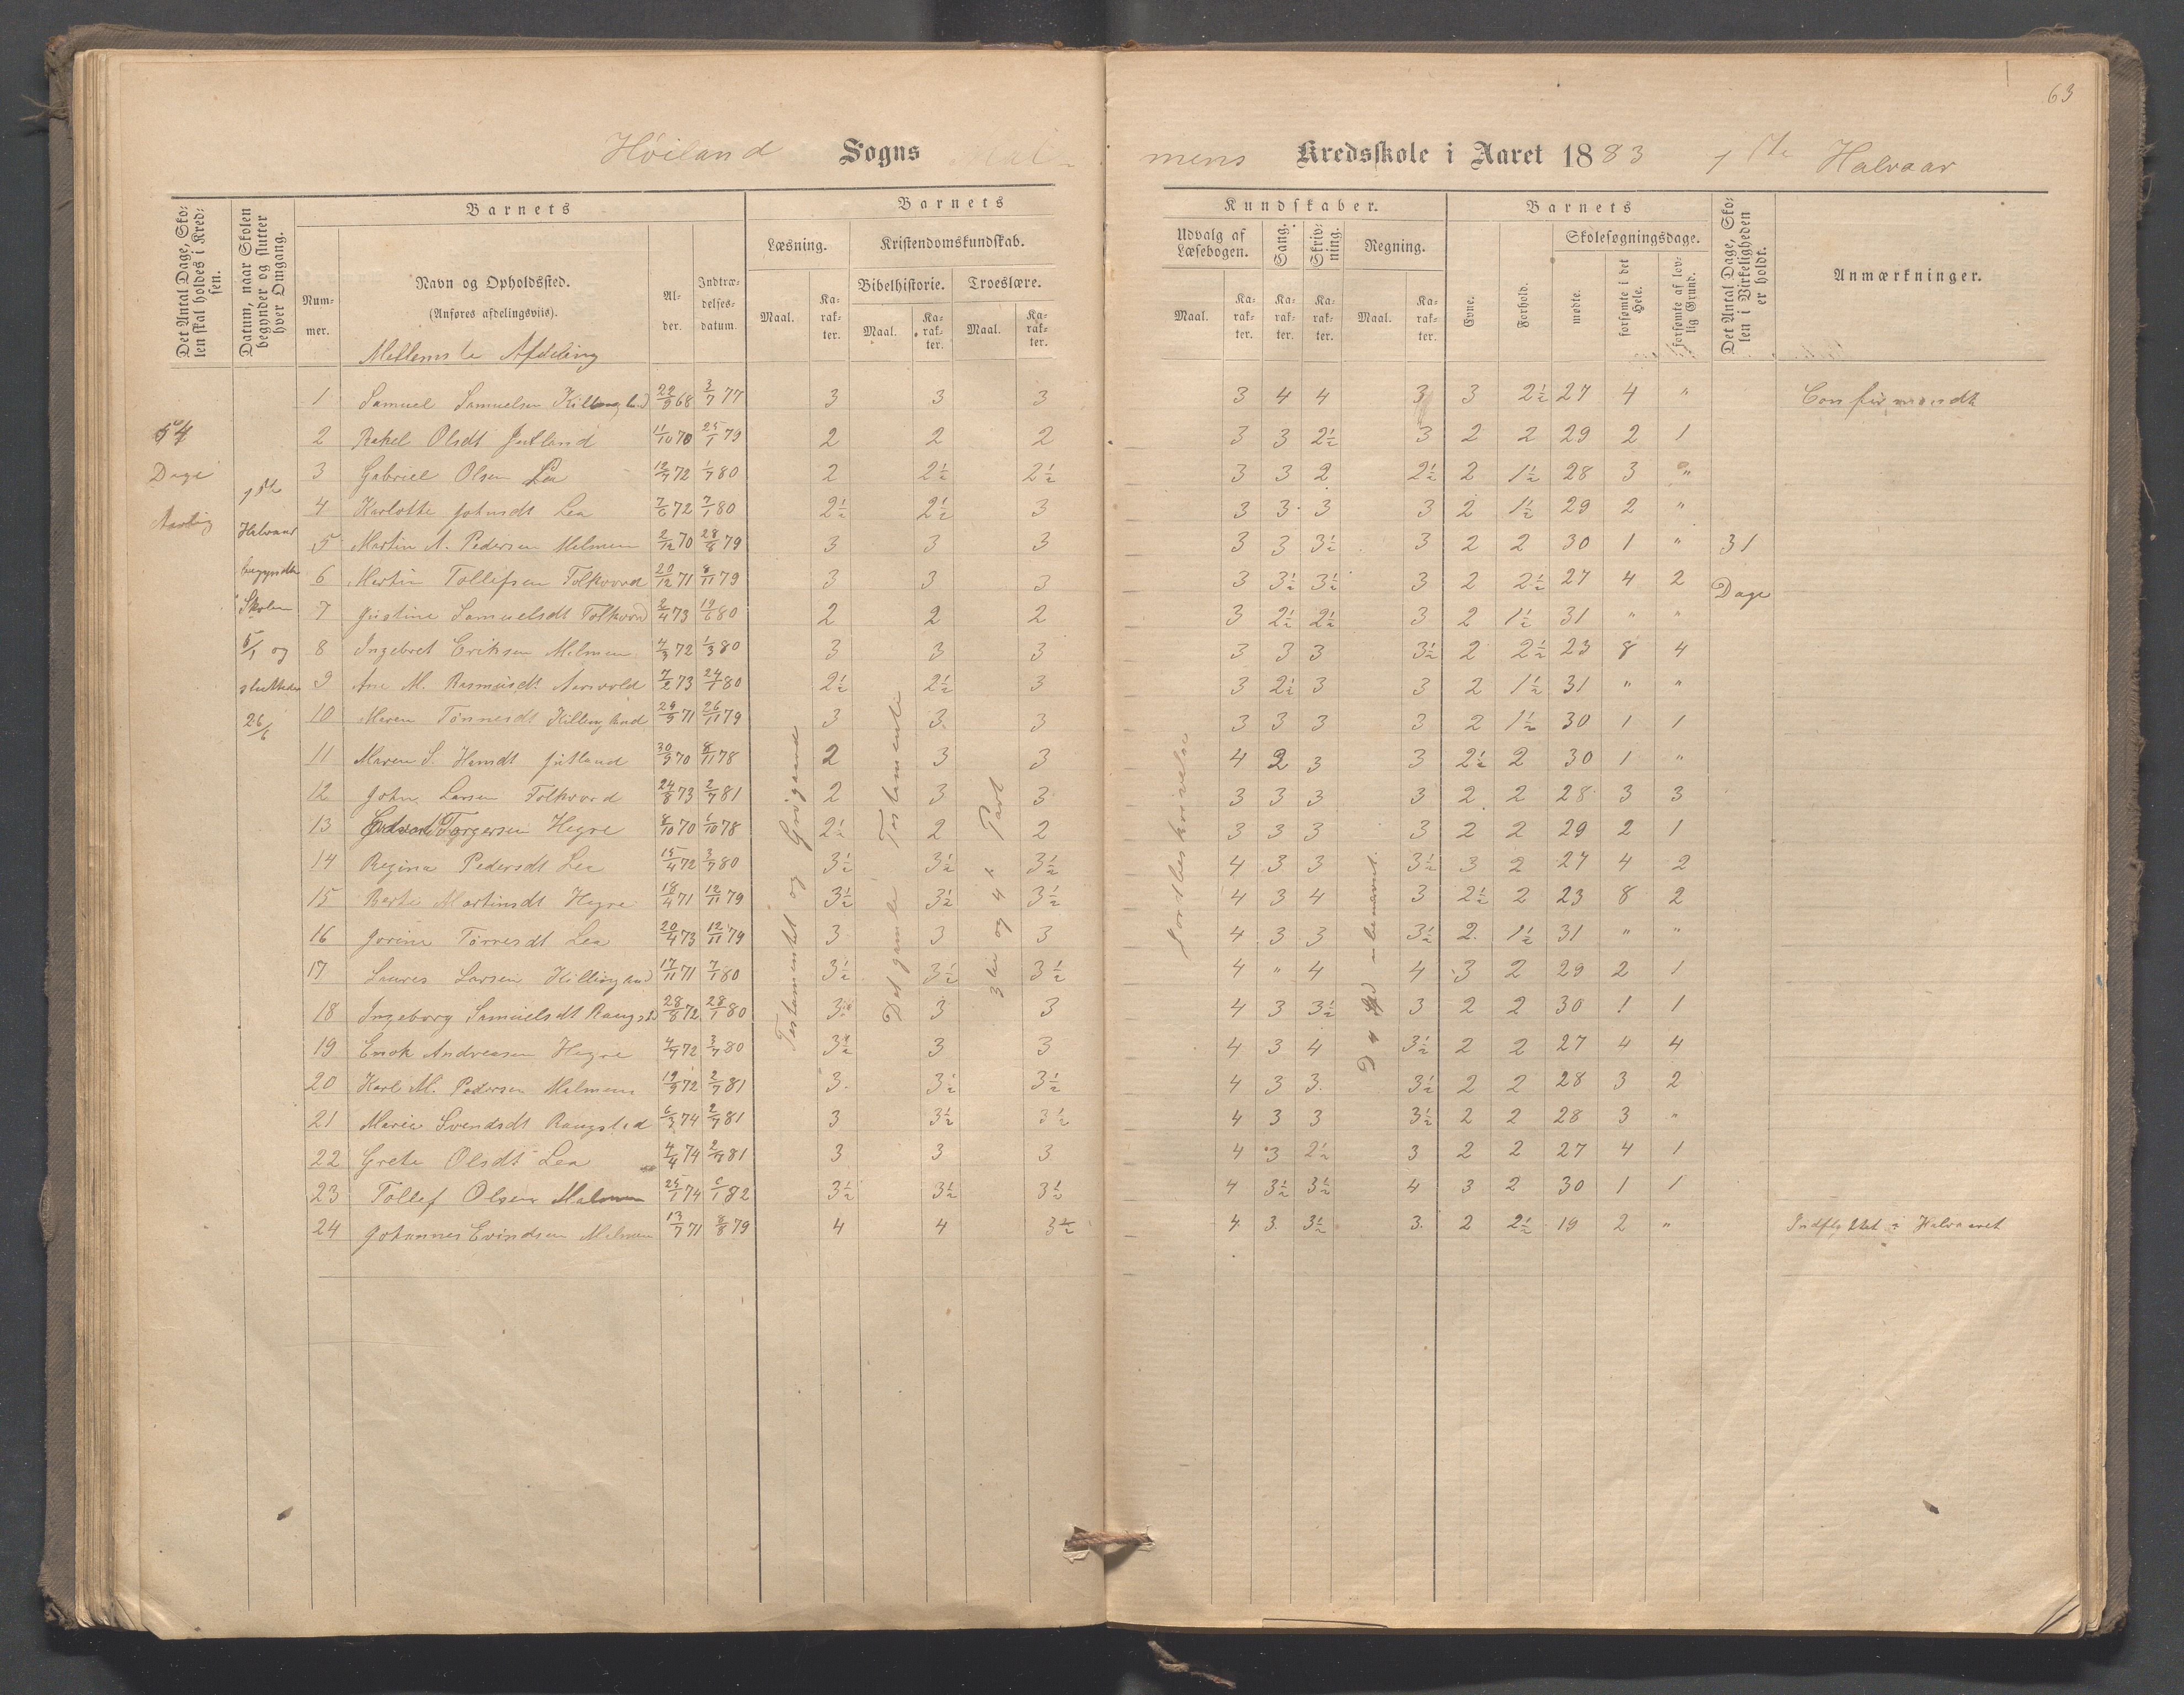 63
Høiland Sogns Mal-
mens Kredsskole i Aaret 1883 1ste Halvaar
Det Antal Dage, Skolen skal holdes i Kredsen.
Datum, naar Skolen begynder og slutter hver Omgang.
Barnets
Nummer.
Navn og Opholdssted.
(Anføres afdelingsviis).
Mellemste Afdeling
Alder.
Indtrædelsesdatum.
Barnets
Læsning.
Kristendomskundskab.
Bibelhistorie. Troeslære.
Maal. Karakter. Maal. Karakter. Maal. Karakter.
Kundskaber.
Udvalg af Læsebogen. Sang. Skrivning. Regning.
Maal. Karakter. Karakter. Karakter. Maal. Karakter.
Barnets
Evne. Forhold.
Skolesøgningsdage.
mødte. forsømte i det Hele. forsømte af lovlig Grund.
Det Antal Dage, Skolen i Virkeligheden er holdt.
Anmærkninger.
54
Dage
1ste
Halvaar
begyndte
Skolen
5/1 og
sluttedes
26/6
Testamentet og
Det gamle Testamente
3die og 4. Part
Jordbeskrivelse
31
Dage
1 Samuel Samuelsen Killingland 22/9 68 3/7 77 3 3 3 3 4 4 3 3 2½ 27 4 " Confirmandt
2 Rakel Olsdt Jutland 11/10 70 25/1 79 2 2 2 3 3 2½ 3 2 2 29 2 1
3 Gabriel Olsen Lea 12/7 72 1/7 80 2 2½ 2½ 3 3 2 2½ 2 1½ 28 3 "
4 Karlotte Johnsdt Lea 7/6 72 7/1 80 2½ 2½ 3 3 3 3 3 2 1½ 29 2 "
5 Martin A. Pedersen Malmen 2/12 70 28/8 79 3 3 3 3 3 3½ 3 2 2 30 1 "
6 Martin Tollefsen Folkvord 20/12 71 8/11 79 3 3 3 3 3½ 3½ 3 2 2½ 27 4 2
7 Justine Samuelsdt Folkvord 2/4 73 19/6 80 2 2 2 3 2½ 2½ 3 2 1½ 31 " "
8 Ingebret Eriksen Malmen 4/3 72 1/3 80 3 3 3 3 3 3 3½ 2 2½ 23 8 4
9 Ane M. Rasmusdt Aarsvold 7/2 73 24/1 80 2½ 2½ 3 3 2½ 3 3 2 1½ 31 " "
10 Maren Tønnesdt Killingland 29/9 71 26/11 79 3 3 3 3 3 3 3 2 1½ 30 1 1
11 Maren S. Hansdt Jutland 30/9 70 8/11 78 2 3 3 4 2 3 3 2½ 2 30 1 "
12 John Larsen Folkvord 24/8 73 2/7 81 2 3 3 3 3 3 3 2 2 28 3 3
13 Torgersen Hegre 8/10 70 1/10 78 2½ 2 2 3 3 3 3 2 2 29 2 1
14 Regina Pedersdt Lea 15/4 72 3/7 80 3½ 3½ 3½ 4 3 3 3½ 3 2 27 4 2
15 Berte Martinsdt Hegre 18/4 71 12/11 79 3½ 3½ 3½ 4 3 4 3 2½ 2 23 8 2
16 Jorine Tørresdt Lea 20/4 73 12/11 79 3 3 3 4 3 3 3½ 2 1½ 31 " "
17 Laures Larsen Killingland 17/11 71 7/1 80 3½ 3½ 3½ 4 " 4 4 3 2 29 2 1
18 Ingeborg Samuelsdt 28/8 72 28/1 80 3 3 3 4 3 3½ 3 2 2 30 1 1
19 Enok Andreasen Hegre 4/7 72 3/7 80 3½ 3 3 4 3 4 3½ 2 2 27 4 4
20 Karl M. Pedersen Malmen 19/9 72 2/7 81 3 3½ 3½ 4 3 3 3½ 2 2 28 3 2
21 Marie Svendsdt 6/3 74 2/7 81 3 3½ 3½ 4 3 3 3½ 2 2 28 3 "
22 Grete Olsdt Lea 4/4 74 2/7 81 3 3 3 4 3 2½ 3 2 2 27 4 1
23 Tollef Olsen Malmen 25/1 74 5/1 82 3½ 3½ 3½ 4 3½ 3½ 4 3 2 30 1 1
24 Johannes Eivindsen Malmen 13/7 71 8/8 79 4 4 3½ 4 3 3½ 3 2 2½ 19 2 " Indflyttet i Halvaaret